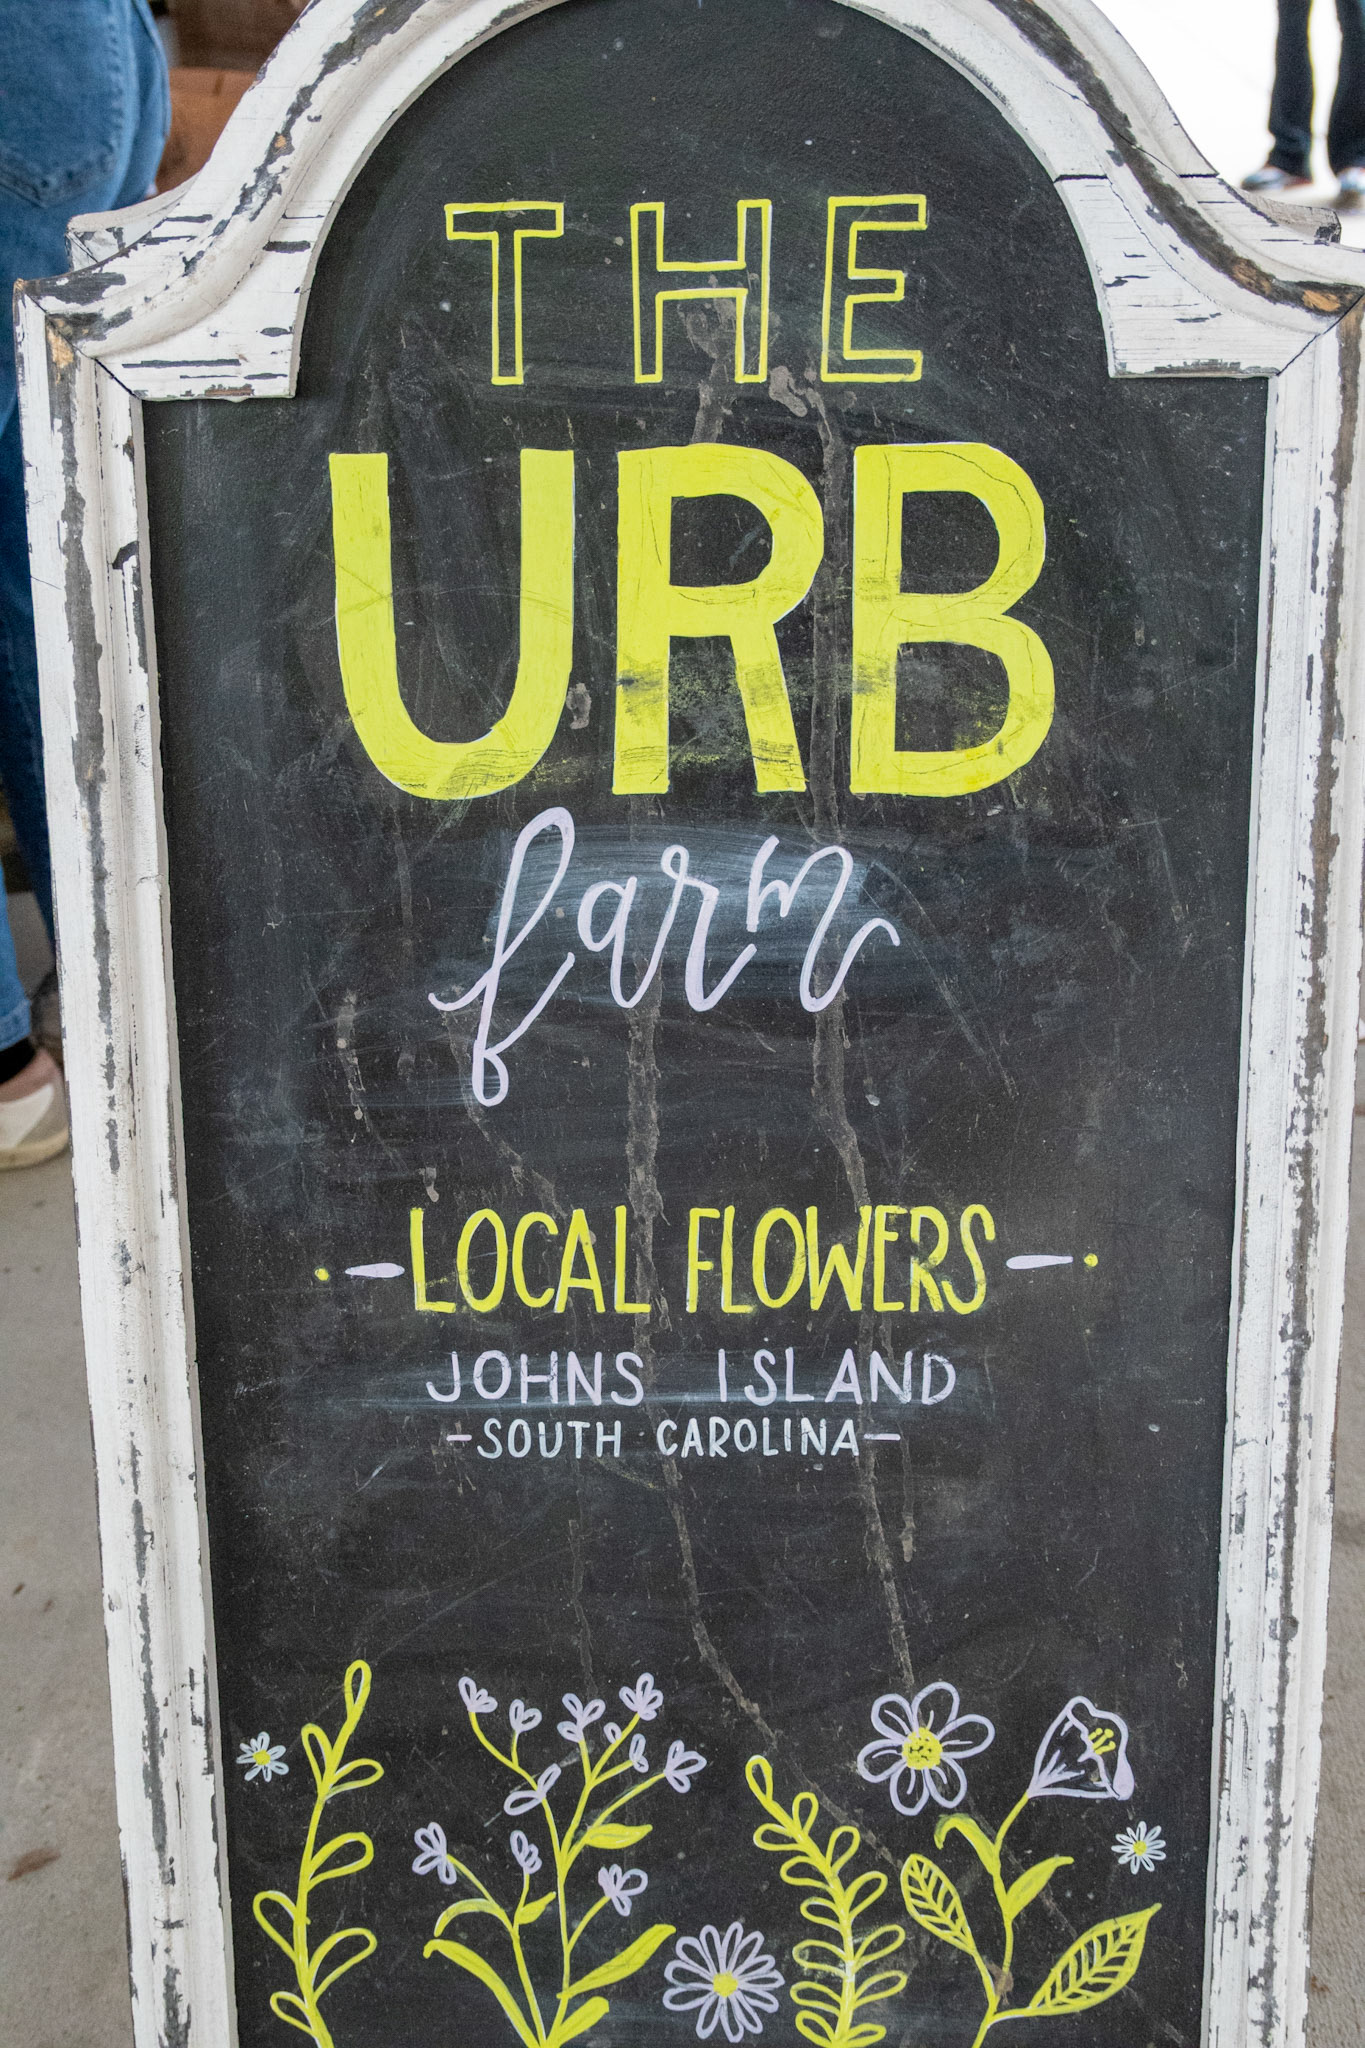 THE
URB
farm
LOCAL FLOWERS
JOHNS ISLAND
-SOUTH CAROLINA-